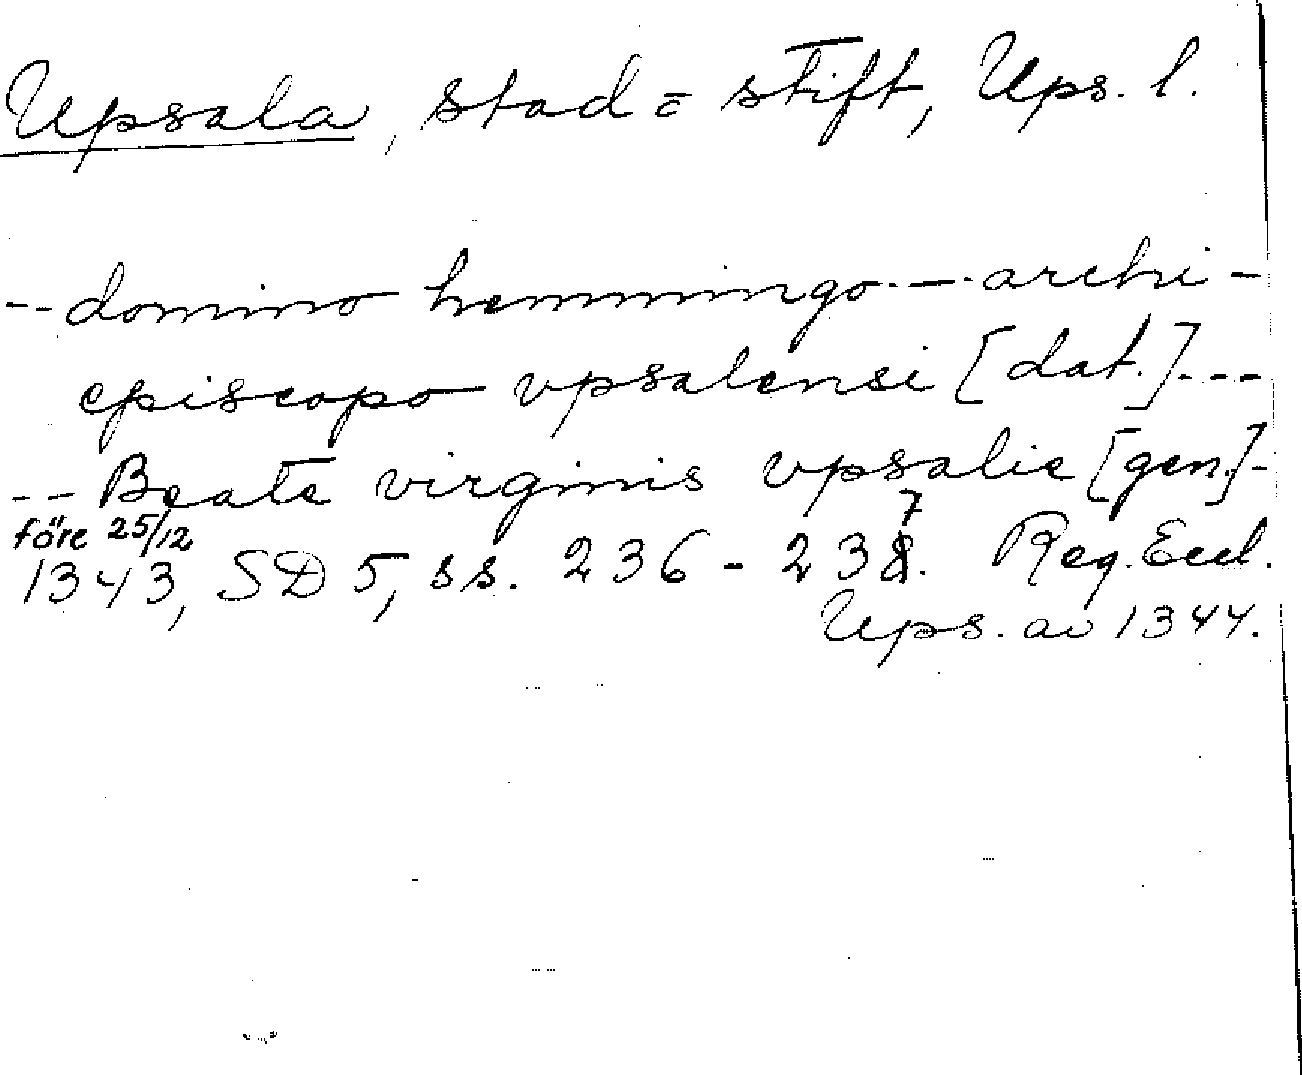 Upsala, stad = stift, Ups. l.
-- domino hemmingo -- archi-
episcopo vpsalensi [dat.] ---
-- Beate virginis vpsalie [gen.] -
före 25/12 7
1343, SD 5, ss. 236 - 238. Reg. Eccl.
Ups. av 1344.